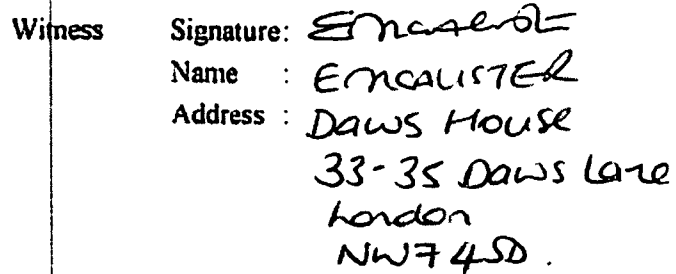 Witness Signature: EMcAlister
Name : EMCALISTER
Address : Daws House
33-35 Daws Lane
London
NW7 4SD.